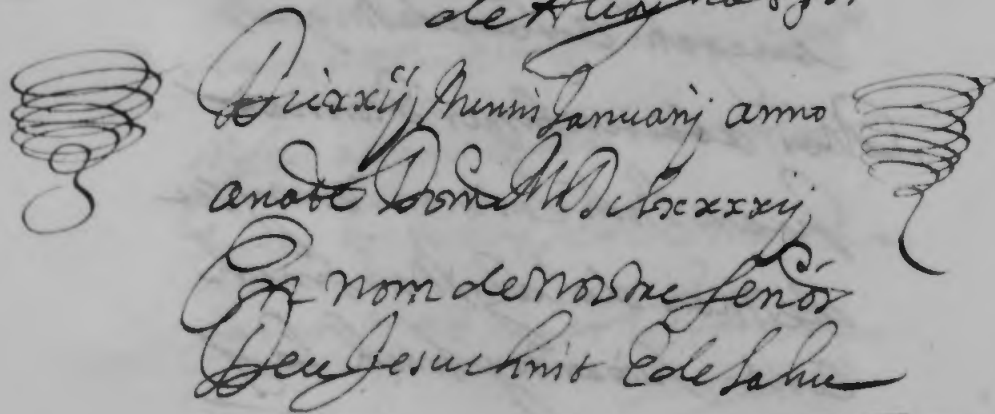 Die xxij Mensis Januarij anno
a natte Domi MDclxxxxij
En nom de nostre senor
Deu Jesuchrist E de la hu